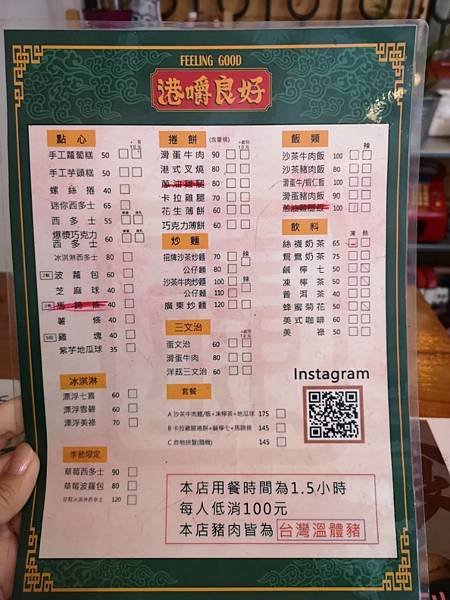 FEELING GOOD
港嚼良好
點心
手工蘿蔔糕 50
手工芋頭糕 50
螺絲捲 40
迷你西多士 65
西多士 55
爆漿巧克力
西多士 60
冰淇淋西多士 80
2顆 波蘿包 60
芝麻球 40
馬蹄條 40
薯條 40
5塊 雞塊 40
紫芋地瓜球 35
冰淇淋
漂浮七喜 60
漂浮雪碧 60
漂浮美祿 70
季節限定
草莓西多士 90
草莓波蘿包 80
草莓冰淇淋西多士 120
捲餅 (含薯條)
滑蛋牛肉 90
港式叉燒 80
蔥油雞腿 80
卡拉雞腿 80
花生薄餅 60
巧克力薄餅 60
炒麵
招牌沙茶炒麵 70 辣
公仔麵 80
沙茶牛肉炒麵 100 辣
公仔麵 110
廣東炒麵 120
三文治
蛋文治 60
滑蛋牛肉 80
洋菇三文治 60
套餐
A 沙茶牛肉麵/飯+凍檸茶+地瓜球 175
B 卡拉雞腿捲餅+鹹檸七+馬蹄條 145
C 炸物拼盤(隨機) 145
飯類
辣
沙茶牛肉飯 100
沙茶豬肉飯 80
滑蛋牛/蝦仁飯 100
滑蛋豬肉飯 90
蔥油雞腿飯 100
飲料
凍 熱
絲襪奶茶 65
鴛鴦奶茶 75
鹹檸七 50
凍檸茶 50
普洱茶 40
蜂蜜菊花 50
美式咖啡 60
美祿 50
Instagram
本店用餐時間為1.5小時
每人低消100元
本店豬肉皆為 台灣溫體豬